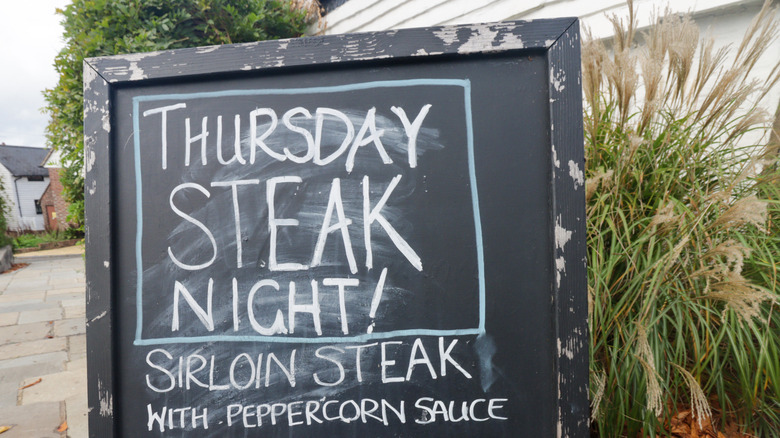 THURSDAY
STEAK
NIGHT!
SIRLOIN STEAK
WITH PEPPERCORN SAUCE